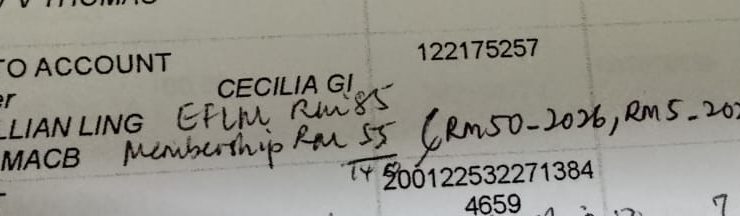 V THOMAS
TO ACCOUNT 122175257
er CECILIA GI
LLIAN LING EFLM RM 85
MACB Membership RM 55 (RM50-2026, RM5-202
200122532271384
4659
7